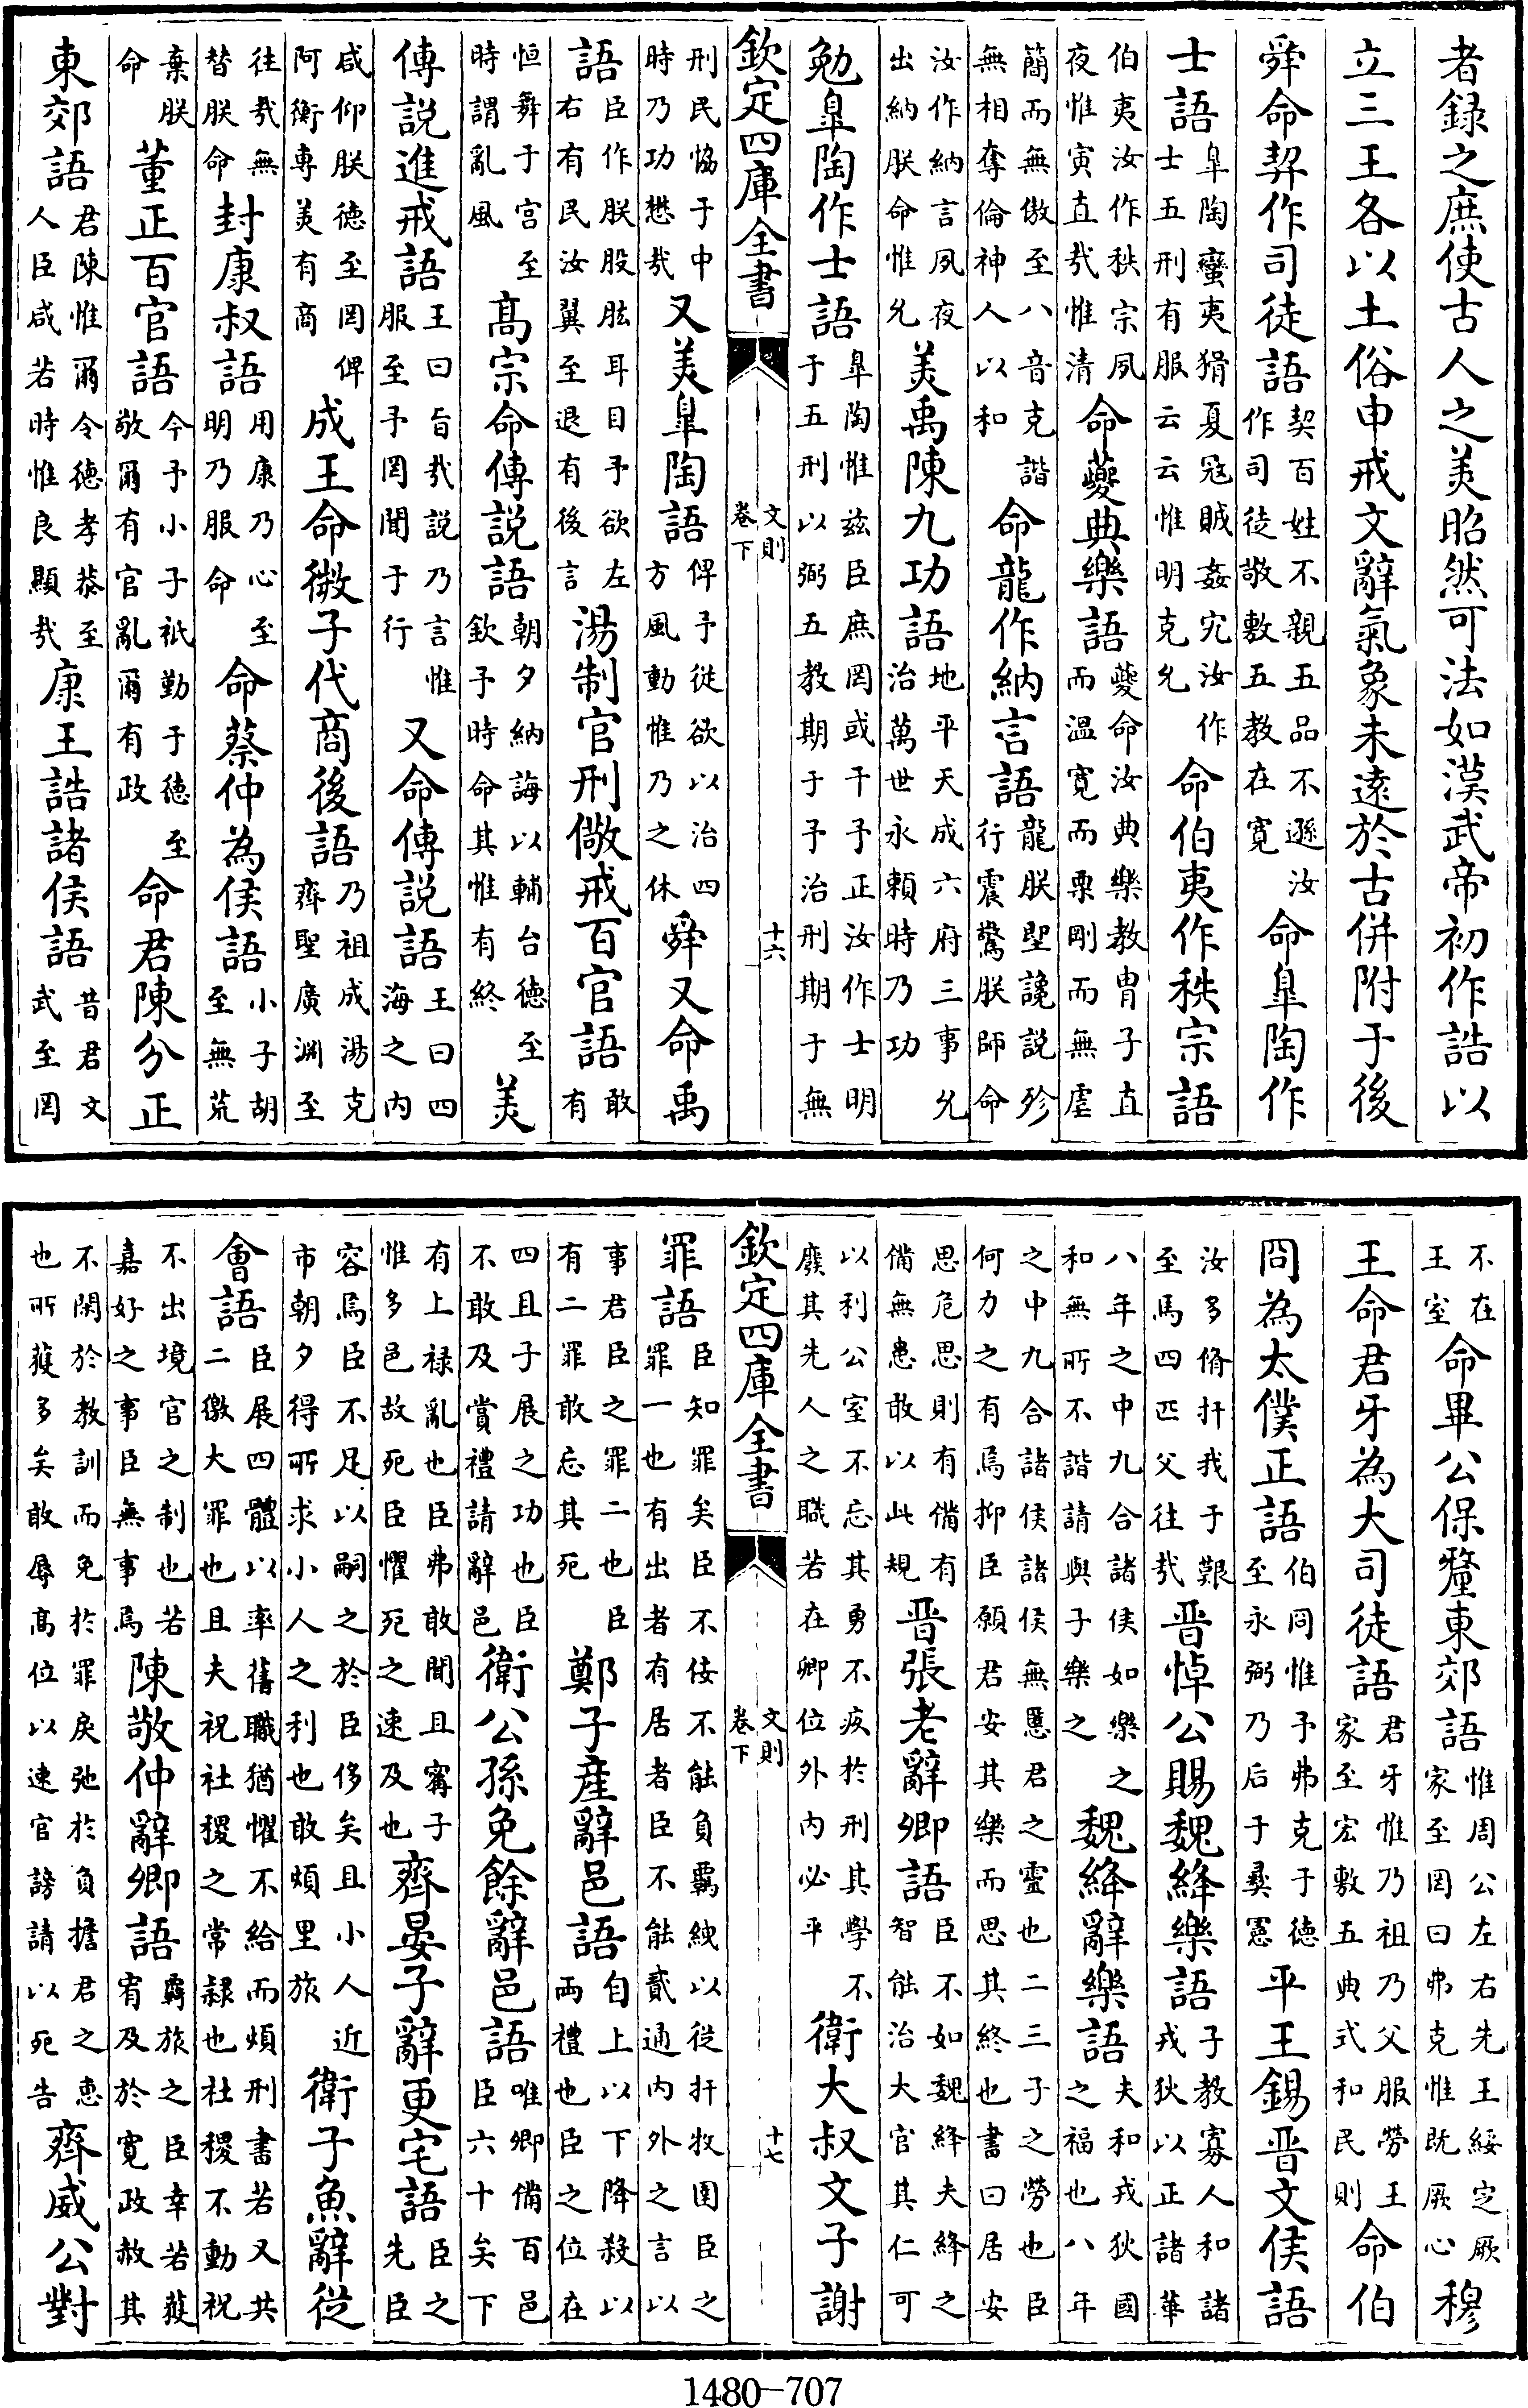 者録之庶使古人之美昭然可法如漢武帝初作誥以
立三王各以土俗申戒文辭氣象未遠於古併附于後
舜命契作司徒語契百姓不親五品不遜汝作司徒敬敷五教在寛命臯陶作
士語臯陶蠻夷猾夏冦賊姦宄汝作士五刑有服云云惟明克允命伯夷作秩宗語
伯夷汝作秩宗夙夜惟寅直哉惟清命夔典樂語夔命汝典樂教胄子直而温寛而栗剛而無虐
簡而無傲至八音克諧無相奪倫神人以和命龍作納言語龍朕堲讒説殄行震驚朕師命
汝作納言夙夜出納朕命惟允美禹陳九功語地平天成六府三事允治萬世永頼時乃功
勉臯陶作士語臯陶惟兹臣庶罔或干予正汝作士明于五刑以弼五教期于予治刑期于無
欽定四庫全書 文則卷下 十六
刑民恊于中時乃功懋哉又美臯陶語俾予從欲以治四方風動惟乃之休舜又命禹
語臣作朕股肱耳目予欲左右有民汝翼至退有後言湯制官刑儆戒百官語敢有
恒舞于宫至時謂亂風髙宗命傅説語朝夕納誨以輔台徳至欽予時命其惟有終美
傅説進戒語王曰旨哉説乃言惟服至予罔聞于行又命傅説語王曰四海之内
咸仰朕徳至罔俾阿衡専美有商成王命微子代商後語乃祖成湯克齊聖廣淵至
往哉無替朕命封康叔語用康乃心至明乃服命命蔡仲為侯語小子胡至無荒
棄朕命董正百官語今予小子祗勤于徳至敬爾有官亂爾有政命君陳分正
東郊語君陳惟爾令徳孝恭至人臣咸若時惟良顯哉康王誥諸侯語昔君文武至罔
不在王室命畢公保釐東郊語惟周公左右先王綏定厥家至罔曰弗克惟既厥心穆
王命君牙為大司徒語君牙惟乃祖乃父服勞王家至宏敷五典式和民則命伯
冏為太僕正語伯冏惟予弗克于徳至永弼乃后于彞憲平王錫晋文侯語
汝多脩扞我于艱至馬四匹父往哉晋悼公賜魏絳樂語子教寡人和諸戎狄以正諸華
八年之中九合諸侯如樂之和無所不諧請與子樂之魏絳辭樂語夫和戎狄國之福也八年
之中九合諸侯諸侯無慝君之靈也二三子之勞也臣何力之有焉抑臣願君安其樂而思其終也書曰居安
思危思則有備有備無患敢以此規晋張老辭卿語臣不如魏絳夫絳之智能治大官其仁可
以利公室不忘其勇不疚於刑其學不廢其先人之職若在卿位外内必平衛大叔文子謝
欽定四庫全書 文則卷下 十七
罪語臣知罪矣臣不佞不能負羈絏以從扞牧圉臣之罪一也有出者有居者臣不能貳通内外之言以
事君臣之罪二也有二罪敢忘其死鄭子産辭邑語臣自上以下降殺以兩禮也臣之位在
四且子展之功也臣不敢及賞禮請辭邑衛公孫免餘辭邑語唯卿備百邑臣六十矣下
有上禄亂也臣弗敢聞且甯子惟多邑故死臣懼死之速及也齊晏子辭更宅語臣之先臣
容焉臣不足以嗣之於臣侈矣且小人近市朝夕得所求小人之利也敢煩里旅衛子魚辭從
會語臣展四體以率舊職猶懼不給而煩刑書若又共二徼大罪也且夫祝社稷之常𨽻也社稷不動祝
不出境官之制也若嘉好之事臣無事焉陳敬仲辭卿語覊旅之臣幸若獲宥及於寛政赦其
不閑於教訓而免於罪戾弛於負擔君之惠也所獲多矣敢辱髙位以速官謗請以死告齊威公對
1480-707